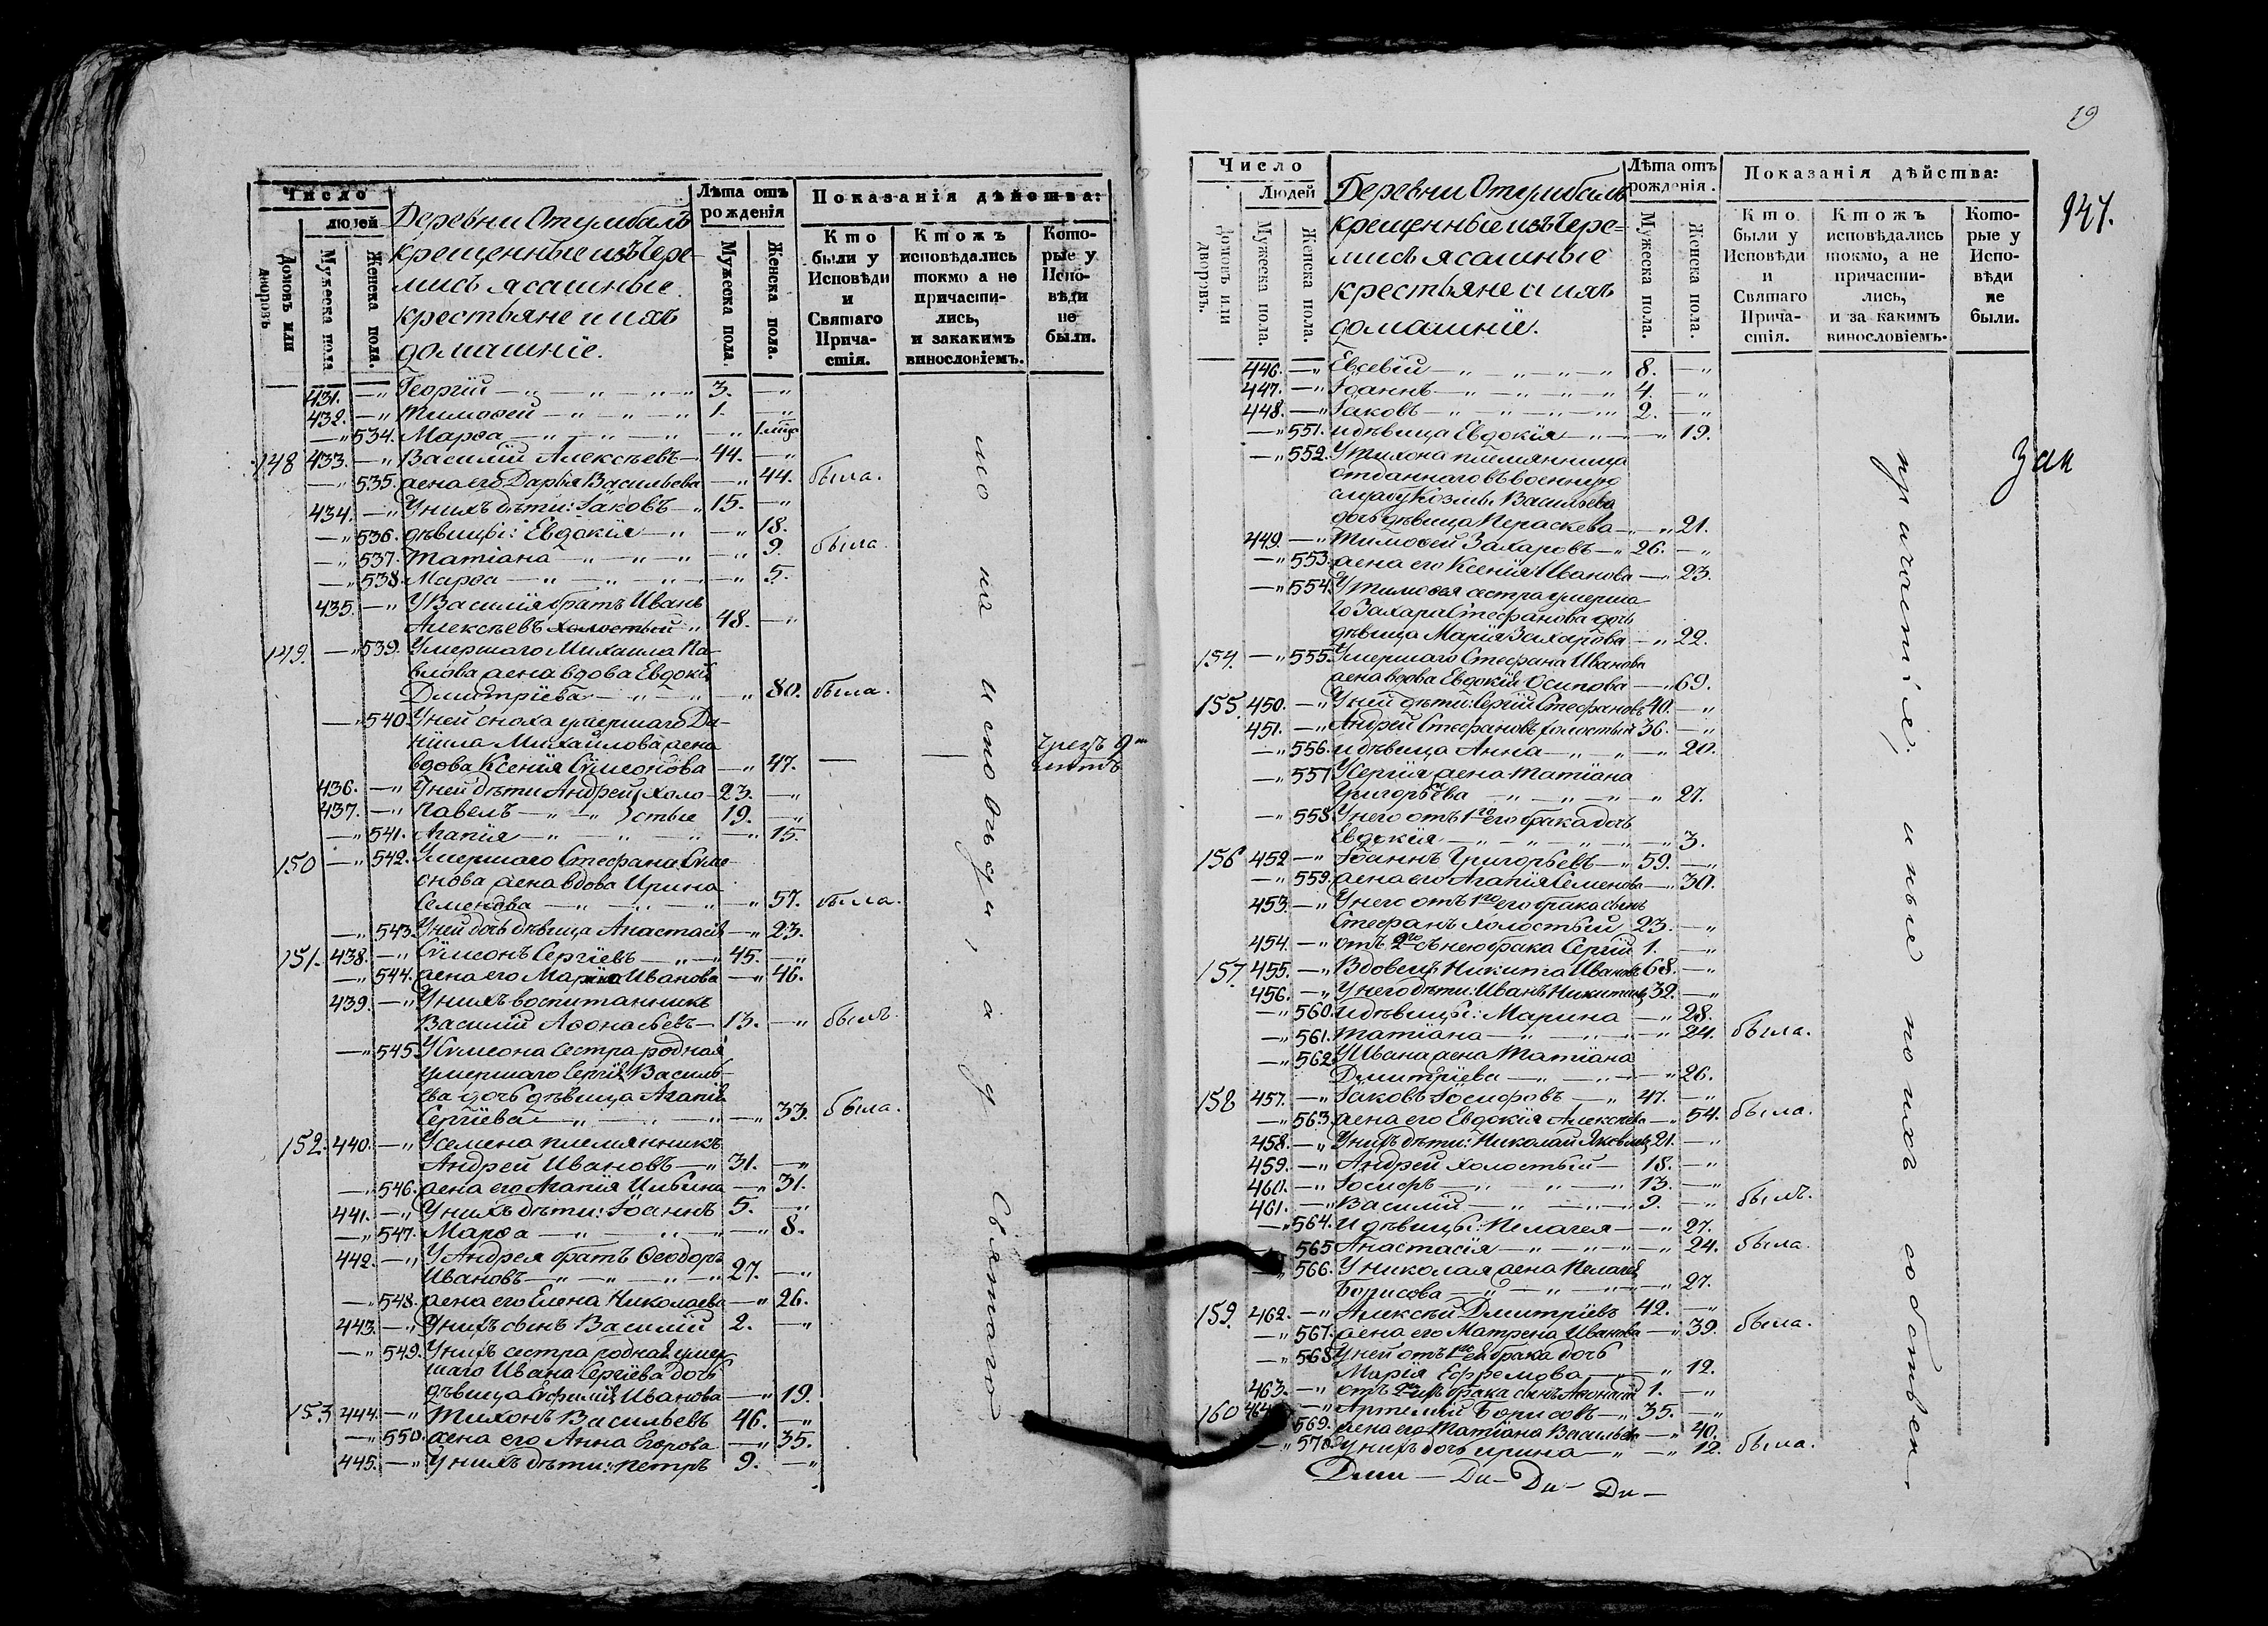 Число
людей
Домовъ или дворовъ
Мужеска пола
Женска пола.
Деревни Отулибаль
крещенные изъ Чере-
мисъ ясашные
крестьяне и ихъ
домашнiе.
Лѣта отъ рожденiя
Мужеска пола.
Женска пола.
Показанiя дѣйства:
Кто были у Исповѣди и Святаго Прича-стiя.
Ктожъ исповѣдались токмо а не причасти-лись, и закакимъ винословiемъ.
Кото-рые у Испо-вѣди не были.
431. —" Георгiй —" —" —" 3. —"
432. —" Тимоѳей —" —" —" 1. —"
—" 534. Марѳа —" —" —" —" 1 мца
148 433. —" Василiй Алексѣевъ— 44. —"
—" 535. жена его Дарья Васильева —" 44. была.
434. —" У нихъ дѣти: Iаковъ —" 15. —"
—" 536. дѣвицы: Евдокiя —" —" 18.
—" 537. Татiана —" —" —" —" 9. была
—" 538. Марѳа —" —" —" —" 5.
435. —" У Василiя братъ Иванъ
Алексѣевъ холостый " 48. —"
149. —" 539. Умершаго Михаила Па-
влова жена вдова Евдокiя
Дмитрiева —" —" —" 80. была.
—" 540. У ней сноха умершаго Да-
нiила Михайлова жена
вдова Ксенiя Сѵмеонова —" 47. — —
436. —" У ней дѣти Андрей } холо- 23. —"
437. —" Павелъ —" —" } стые 19. —"
—" 541. Агапiя —" —" —" —" 15.
150 —" 542. Умершаго Стефана Сѵме-
онова жена вдова Ирина
Семенова —" —" —" —" 57. была.
—" 543. У ней дочь дѣвица Анастасiя —" 23.
151. 438. —" Сѵмеонъ Сергiевъ —" —" 45. —"
—" 544. жена его Марiя Иванова —" 46.
439. —" У нихъ воспитанникъ
Василiй Аѳонасьевъ — 13. —" былъ.
—" 545. У Сѵмеона сестра родная
умершаго Сергiя Василь-
ева дочь дѣвица Агапiя
Сергiева —" —" —" 33. была.
152. 440. —" У Семена племянникъ
Андрей Ивановъ —" 31. —"
—" 546. жена его Агапiя Ильина —" 31.
441. —" У нихъ дѣти: Iоаннъ 5. —"
—" 547. Марѳа —" —" —" —" 8.
442. —" У Андрея братъ Ѳеодоръ
Ивановъ —" —" —" 27. —"
—" 548. жена его Елена Николаева —" 26.
443. —" У нихъ сынъ Василiй 2. —"
—" 549. У нихъ сестра родная умер-
шаго Ивана Сергiева дочь
дѣвица Евфимiя Иванова —" 19.
153 444. —" Тихонъ Васильевъ 46. —"
—" 550. жена его Анна Егорова —" 35.
445. —" У нихъ дѣти: Петръ 9. —"
но на исповѣди, а у Святаго
19
947.
Зак
Число
Людей
Домовъ или дворовъ.
Мужеска пола.
Женска пола.
Деревни Отулибаль
крещенные изъ Чере=
мисъ ясашные
крестьяне и ихъ
домашнiе.
Лѣта отъ рожденiя.
Мужеска пола.
Женска пола.
Показанiя дѣйства:
Кто были у Исповѣди и Святаго Прича-стiя.
Ктожъ исповѣдались токмо, а не причасти-лись, и за какимъ винословiемъ.
Кото-рые у Испо-вѣди не были.
446. —" Евсевiй —" —" —" 8. —"
447. —" Iоаннъ —" —" —" 4. —"
448. —" Iаковъ —" —" —" 2. —"
—" 551. и дѣвица Евдокiя —" —" 19.
—" 552. У Тихона племянница
отданнаго въ военную
службу Козмы Васильева
дочь дѣвица Пераскева —" 21.
449. —" Тимоѳей Захаровъ —" 26. —"
—" 553. жена его Ксенiя Иванова —" 23.
—" 554. У Тимоѳея сестра умерша-
го Захара Стефанова дочь
дѣвица Марiя Захарова —" 22.
154. —" 555. Умершаго Стефана Иванова
жена вдова Евдокiя Осипова —" 69.
155. 450. —" У ней дѣти: Сергiй Стефановъ 40. —"
451. —" Андрей Стефановъ холостый 36. —"
—" 556. и дѣвица Анна —" —" —" 20.
—" 557. У Сергiя жена Татiана
Григорьева —" —" —" 27.
—" 558. У него отъ 1го его брака дочь
Евдокiя —" —" —" —" 3.
156 452 —" Iоаннъ Григорьевъ —" 59. —"
—" 559. жена его Агапiя Семенова —" 30.
453. —" У него отъ 1го его брака сынъ
Стефанъ холостый 23. —"
454. —" отъ 2го съ нею брака Сергiй 1. —"
157. 455. —" Вдовецъ Никита Ивановъ 68. —"
456. —" У него дѣти: Иванъ Никитинъ 32. —"
—" 560. и дѣвицы: Марина —" 28.
—" 561. Татiана —" —" —" 24. была.
—" 562. У Ивана жена Татiана
Дмитрiева —" —" —" 26.
158 457. —" Iаковъ Iосифовъ —" 47. —"
—" 563. жена его Евдокiя Алексѣева —" 54. была.
458. —" У нихъ дѣти: Николай Яковлевъ 21. —"
459. —" Андрей холостый — 18. —"
460. —" Iосифъ —" —" —" 13. —"
461. —" Василiй —" —" —" 9. —" былъ.
—" 564. и дѣвицы: Пелагея —" —" 27.
565 Анастасiя —" —" —" 24. была.
566. У Николая жена Пелагея
Борисова —" —" —" 27.
159. 462. —" Алексѣй Дмитрiевъ 42. —"
—" 567. жена его Матрена Иванова —" 39. была.
—" 568. У ней отъ 1го ея брака дочь
Марiя Ефремова —" 12.
463. —" отъ 2го ихъ брака сынъ Аѳонасiй 1. —"
160 464 —" Артемiй Борисовъ —" 35. —"
569. жена его Татiана Васильева —" 40.
—" 570. У нихъ дочь Ирина —" —" 12. была.
причастiя, иные по ихъ собствен-